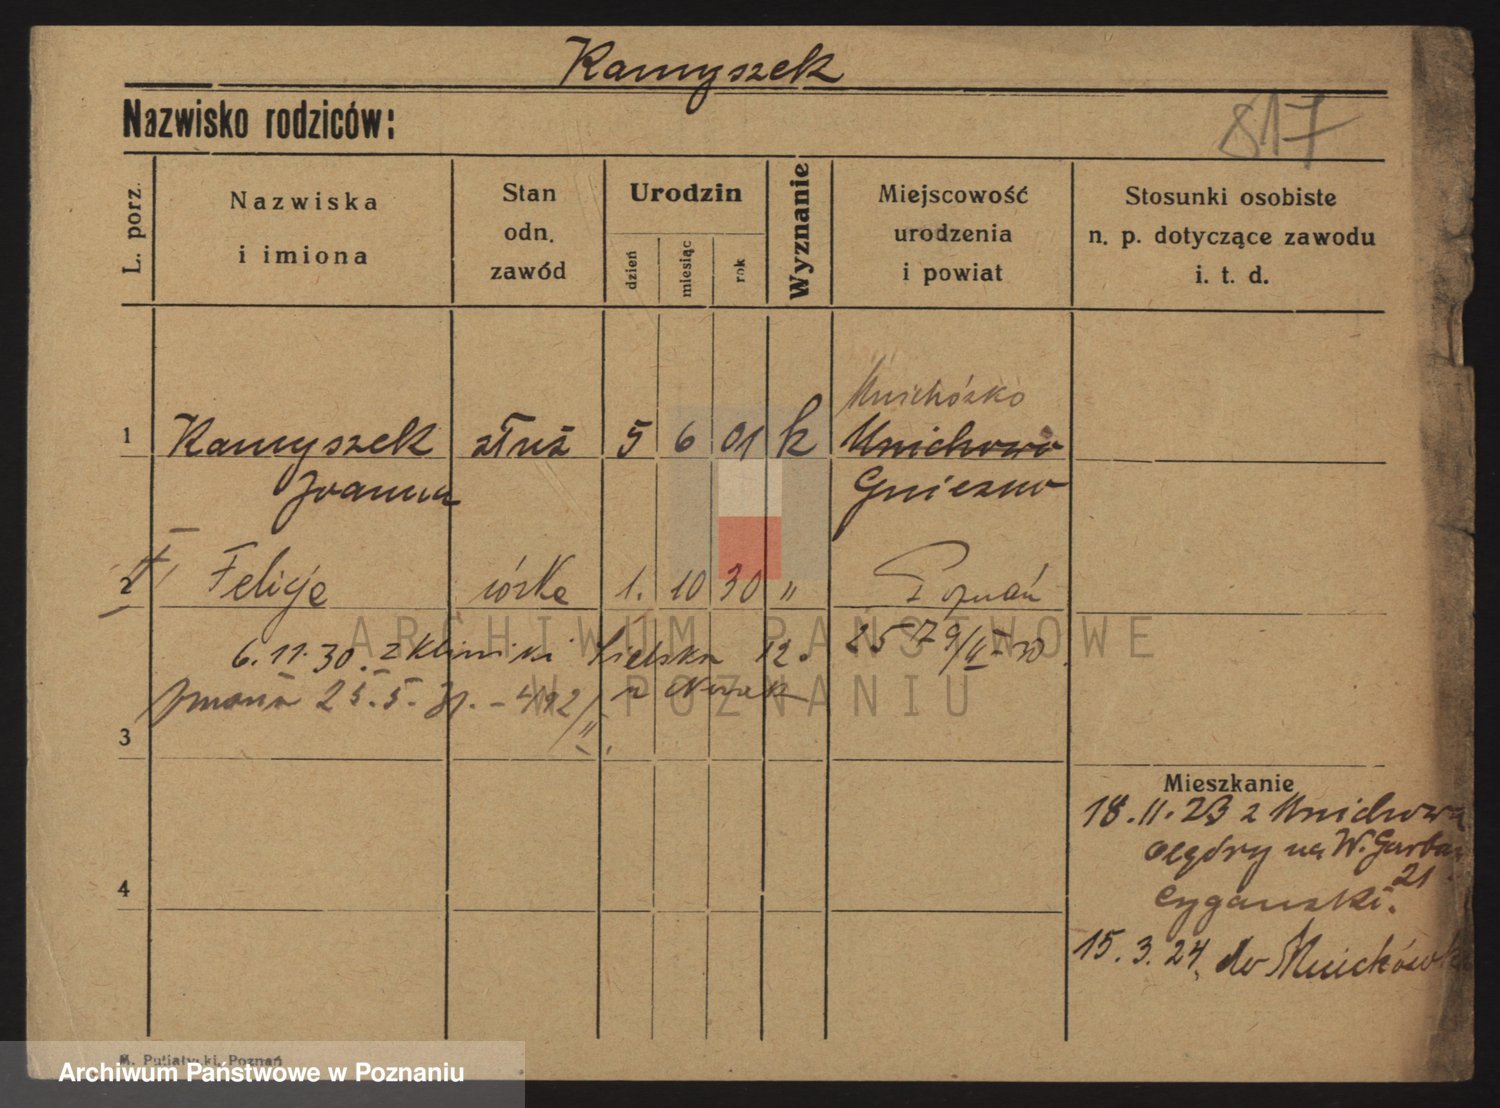 Kamyszek
Nazwisko rodziców:
817
L. porz.
Nazwiska
i imiona
Stan
odn.
zawód
Urodzin
dzień
miesiąc
rok
Wyznanie
Miejscowość
urodzenia
i powiat
Stosunki osobiste
n. p. dotyczące zawodu
i. t. d.
Mnichówko
1 Kamyszek służ 5 6 01 k Mnichowo
Joanna Gniezno
2 Felicje córka 1. 10 30 " Poznań
6.11.30. z Kliniki 12.
25.5.31. - 492/II u Nowak
3
Mieszkanie
18.11.23 z Mnichowa
na W. Garbar
21
Cyganski.
4
15.3.24. do Mnichówka
M. Putiatycki, Poznań
ARCHIWUM PAŃSTWOWE
W POZNANIU
Archiwum Państwowe w Poznaniu